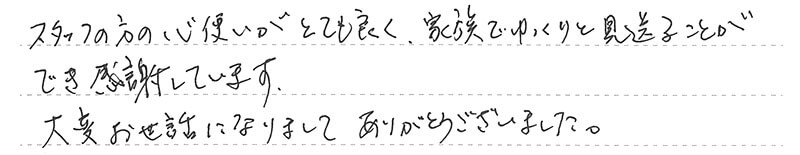 スタッフの方の心使いがとても良く、家族でゆっくりと見送ることが
でき感謝しています。
大変お世話になりまして ありがとうございました。